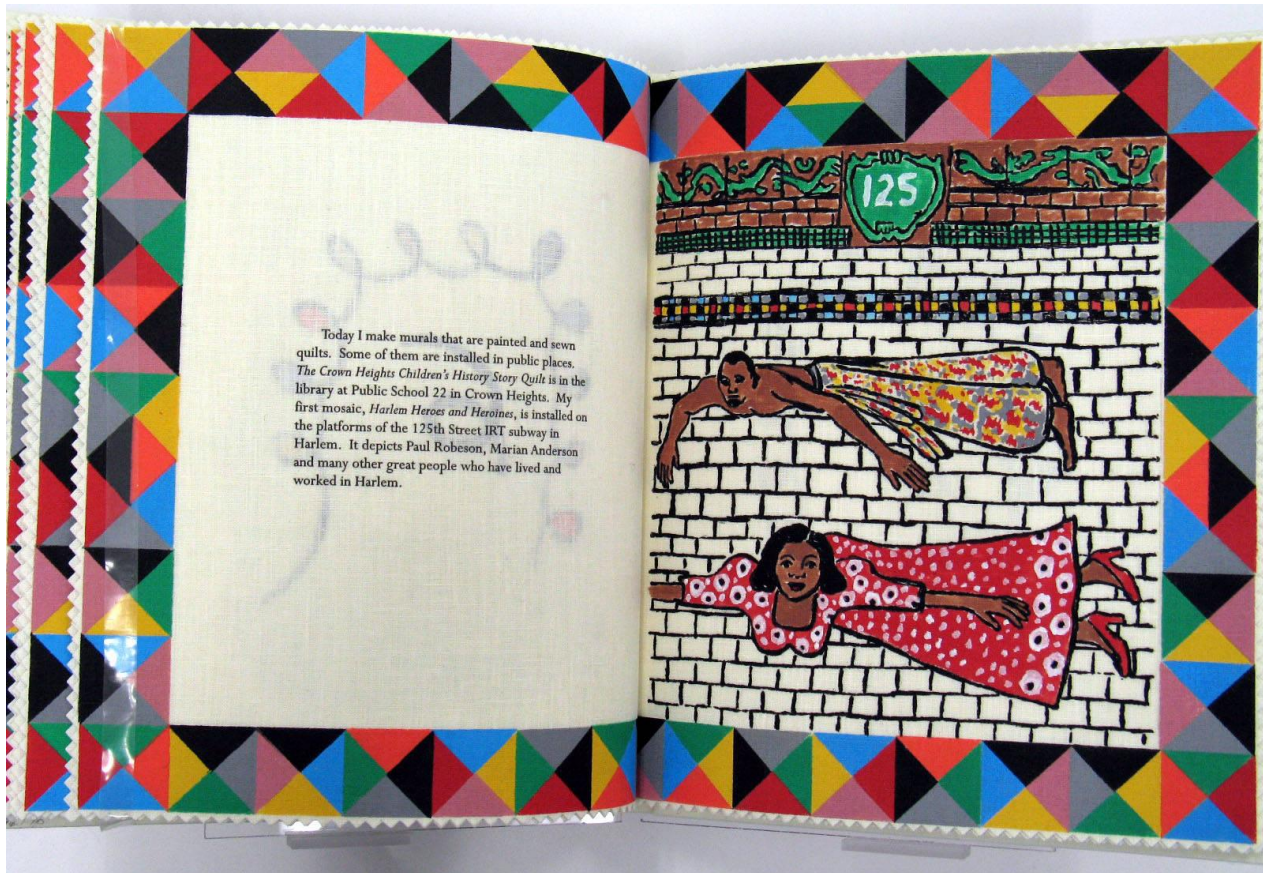 Today I make murals that are painted and sewn
quilts. Some of them are installed in public places.
The Crown Heights Children's History Story Quilt is in the
library at Public School 22 in Crown Heights. My
first mosaic, Harlem Heroes and Heroines, is installed on
the platforms of the 125th Street IRT subway in
Harlem. It depicts Paul Robeson, Marian Anderson
and many other great people who have lived and
worked in Harlem.
125